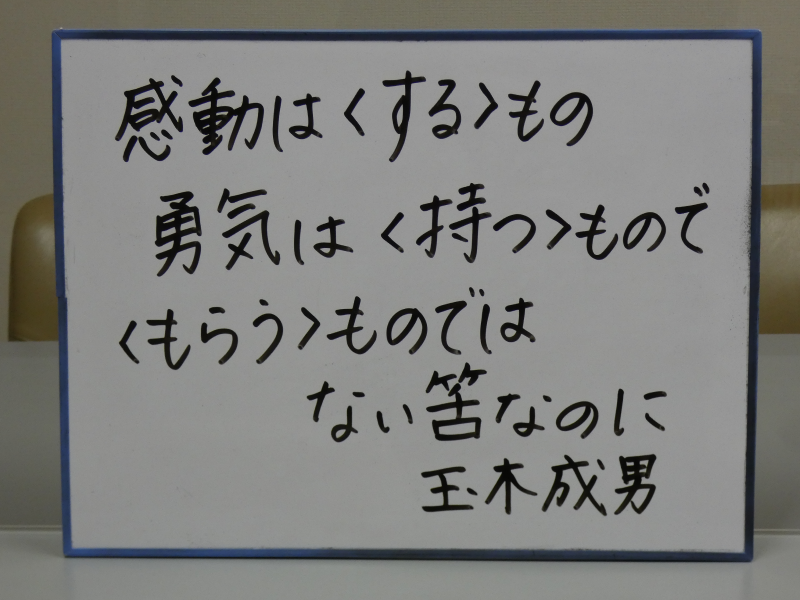 感動は〈する〉もの
勇気は〈持つ〉もので
〈もらう〉ものでは
ない筈なのに
玉木成男